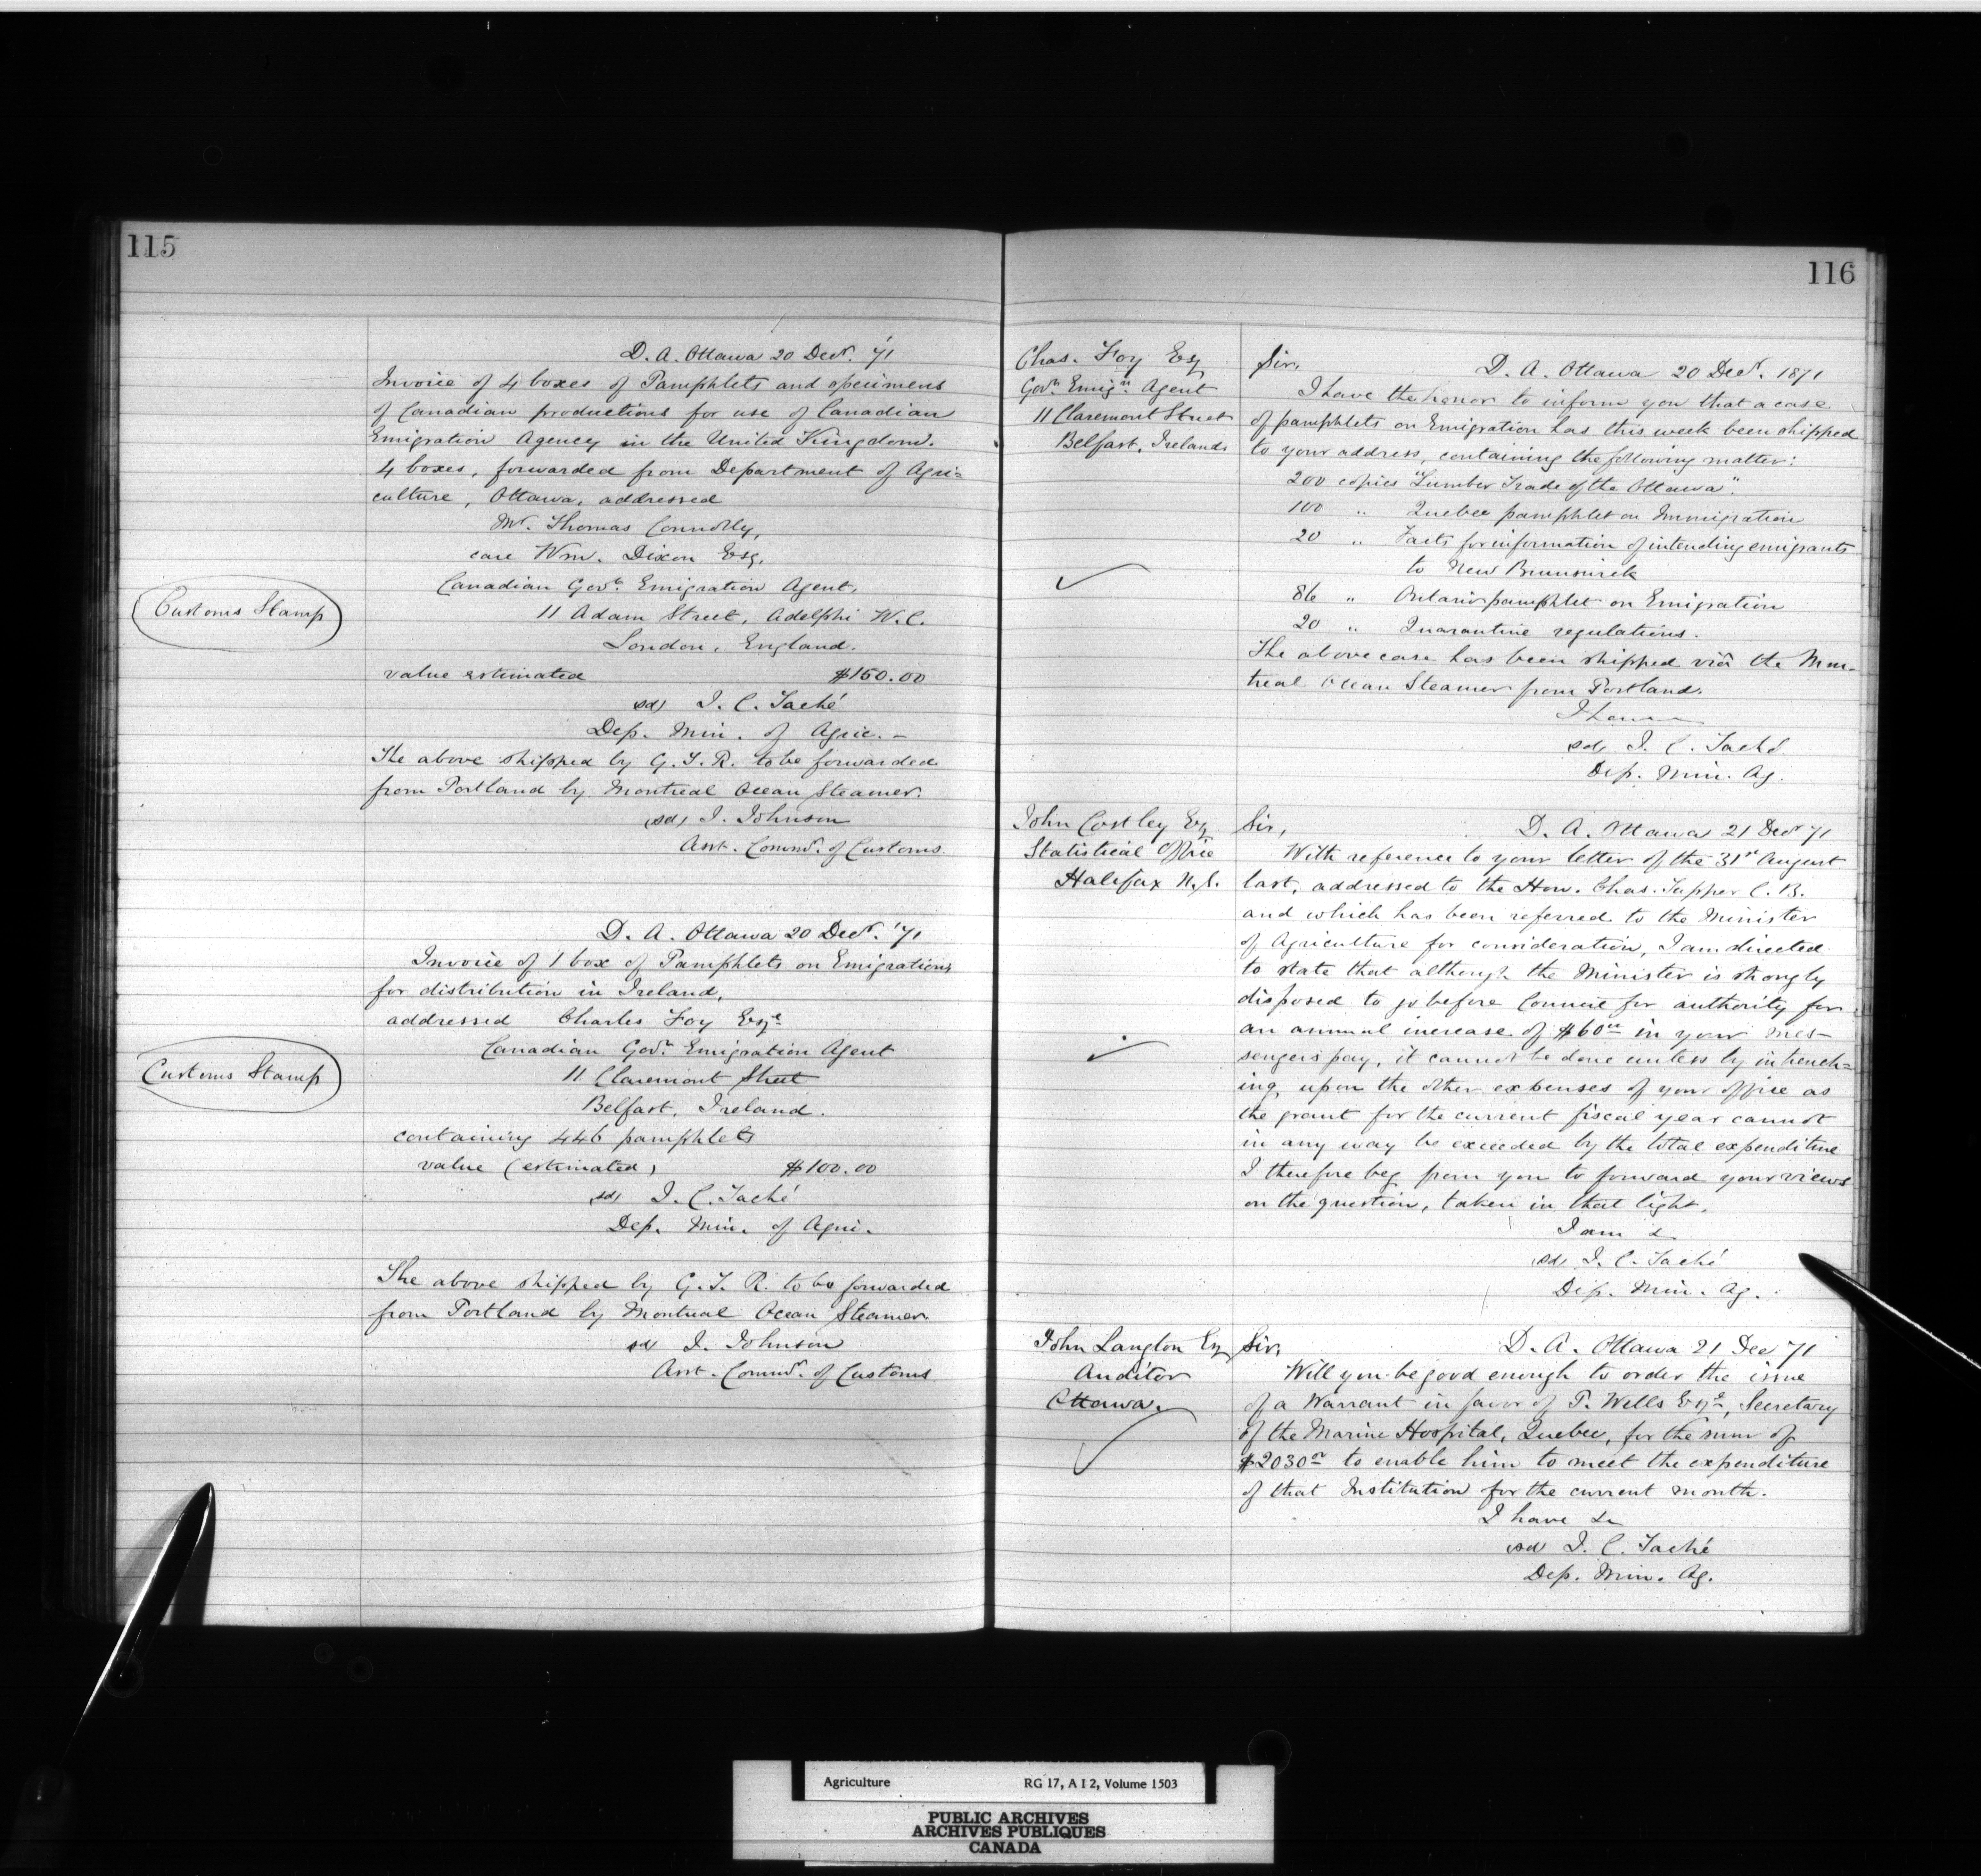 115
D. A. Ottawa 20 Decr. '71
Invoice of 4 boxes of Pamphlets and specimens
of Canadian productions for use of Canadian
Emigration Agency in the United Kingdom.
4 boxes, forwarded from Department of Agri=
culture, Ottawa, addressed
Mr. Thomas Connolly,
care Wm. Dixon Esq.
Canadian Govt. Emigration Agent,
Customs Stamp
11 Adam Street, Adelphi W.C.
London, England.
value estimated $150.00
sd/ J. C. Taché
Dep. Min. of Agric. -
The above shipped by G. T. R. to be forwarded
from Portland by Montreal Ocean Steamer.
(sd) J. Johnson
Asst. Commr. of Customs.
D. A. Ottawa 20 Decr. '71
Invoice of 1 box of Pamphlets on Emigration
for distribution in Ireland,
addressed Charles Foy Esqre
Canadian Govt. Emigration Agent
Customs Stamp
11 Claremont Street
Belfast, Ireland.
containing 446 pamphlets
value (estimated) $100.00
sd/ J. C. Taché
Dep. Min. of Agri.
The above shipped by G. T. R. to be forwarded
from Portland by Montreal Ocean Steamer.
sd J. Johnson
Asst. Commr. of Customs
116
Chas. Foy Esq
Govt. Emign. Agent
11 Claremont Street
Belfast, Ireland
Sir, D. A. Ottawa 20 Decr. 1871
I have the honor to inform you that a case
of pamphlets on Emigration has this week been shipped
to your address, containing the following matter:
200 copies "Lumber Trade of the Ottawa".
100 " Quebec pamphlet on Immigration
20 " Facts for information of intending emigrants
to New Brunswick
86 " Ontario pamphlet on Emigration
20 " Quarantine regulations.
The above case has been shipped viâ the Mon-
treal Ocean Steamer from Portland.
I have
sd/ J. C. Taché
Dep. Min. Ag.
John Costley Esq
Statistical Office
Halifax N.S.
Sir, D. A. Ottawa 21 Decr 71
With reference to your letter of the 31st August
last, addressed to the Hon. Chas. Tupper C. B.
and which has been referred to the Minister
of Agriculture for consideration, I am directed
to state that although the Minister is strongly
disposed to go before Council for authority for
an annual increase of $60 00 in your mes-
sengers pay, it cannot be done unless by intrench=
ing upon the other expenses of your office as
the grant for the current fiscal year cannot
in any way be exceeded by the total expenditure
I therefore beg from you to forward your views
on the question, taken in that light.
I am &
sd/ J. C. Taché
Dep. Min. Ag.
John Langton Esq
Auditor
Ottawa.
Sir, D. A. Ottawa 21 Dec 71
Will you be good enough to order the issue
of a Warrant in favor of P. Wells Esqre, Secretary
of the Marine Hospital, Quebec, for the sum of
$2030 00 to enable him to meet the expenditure
of that Institution for the current month.
I have &
sd J. C. Taché
Dep. Min. Ag.
Agriculture RG 17, A I 2, Volume 1503
PUBLIC ARCHIVES
ARCHIVES PUBLIQUES
CANADA